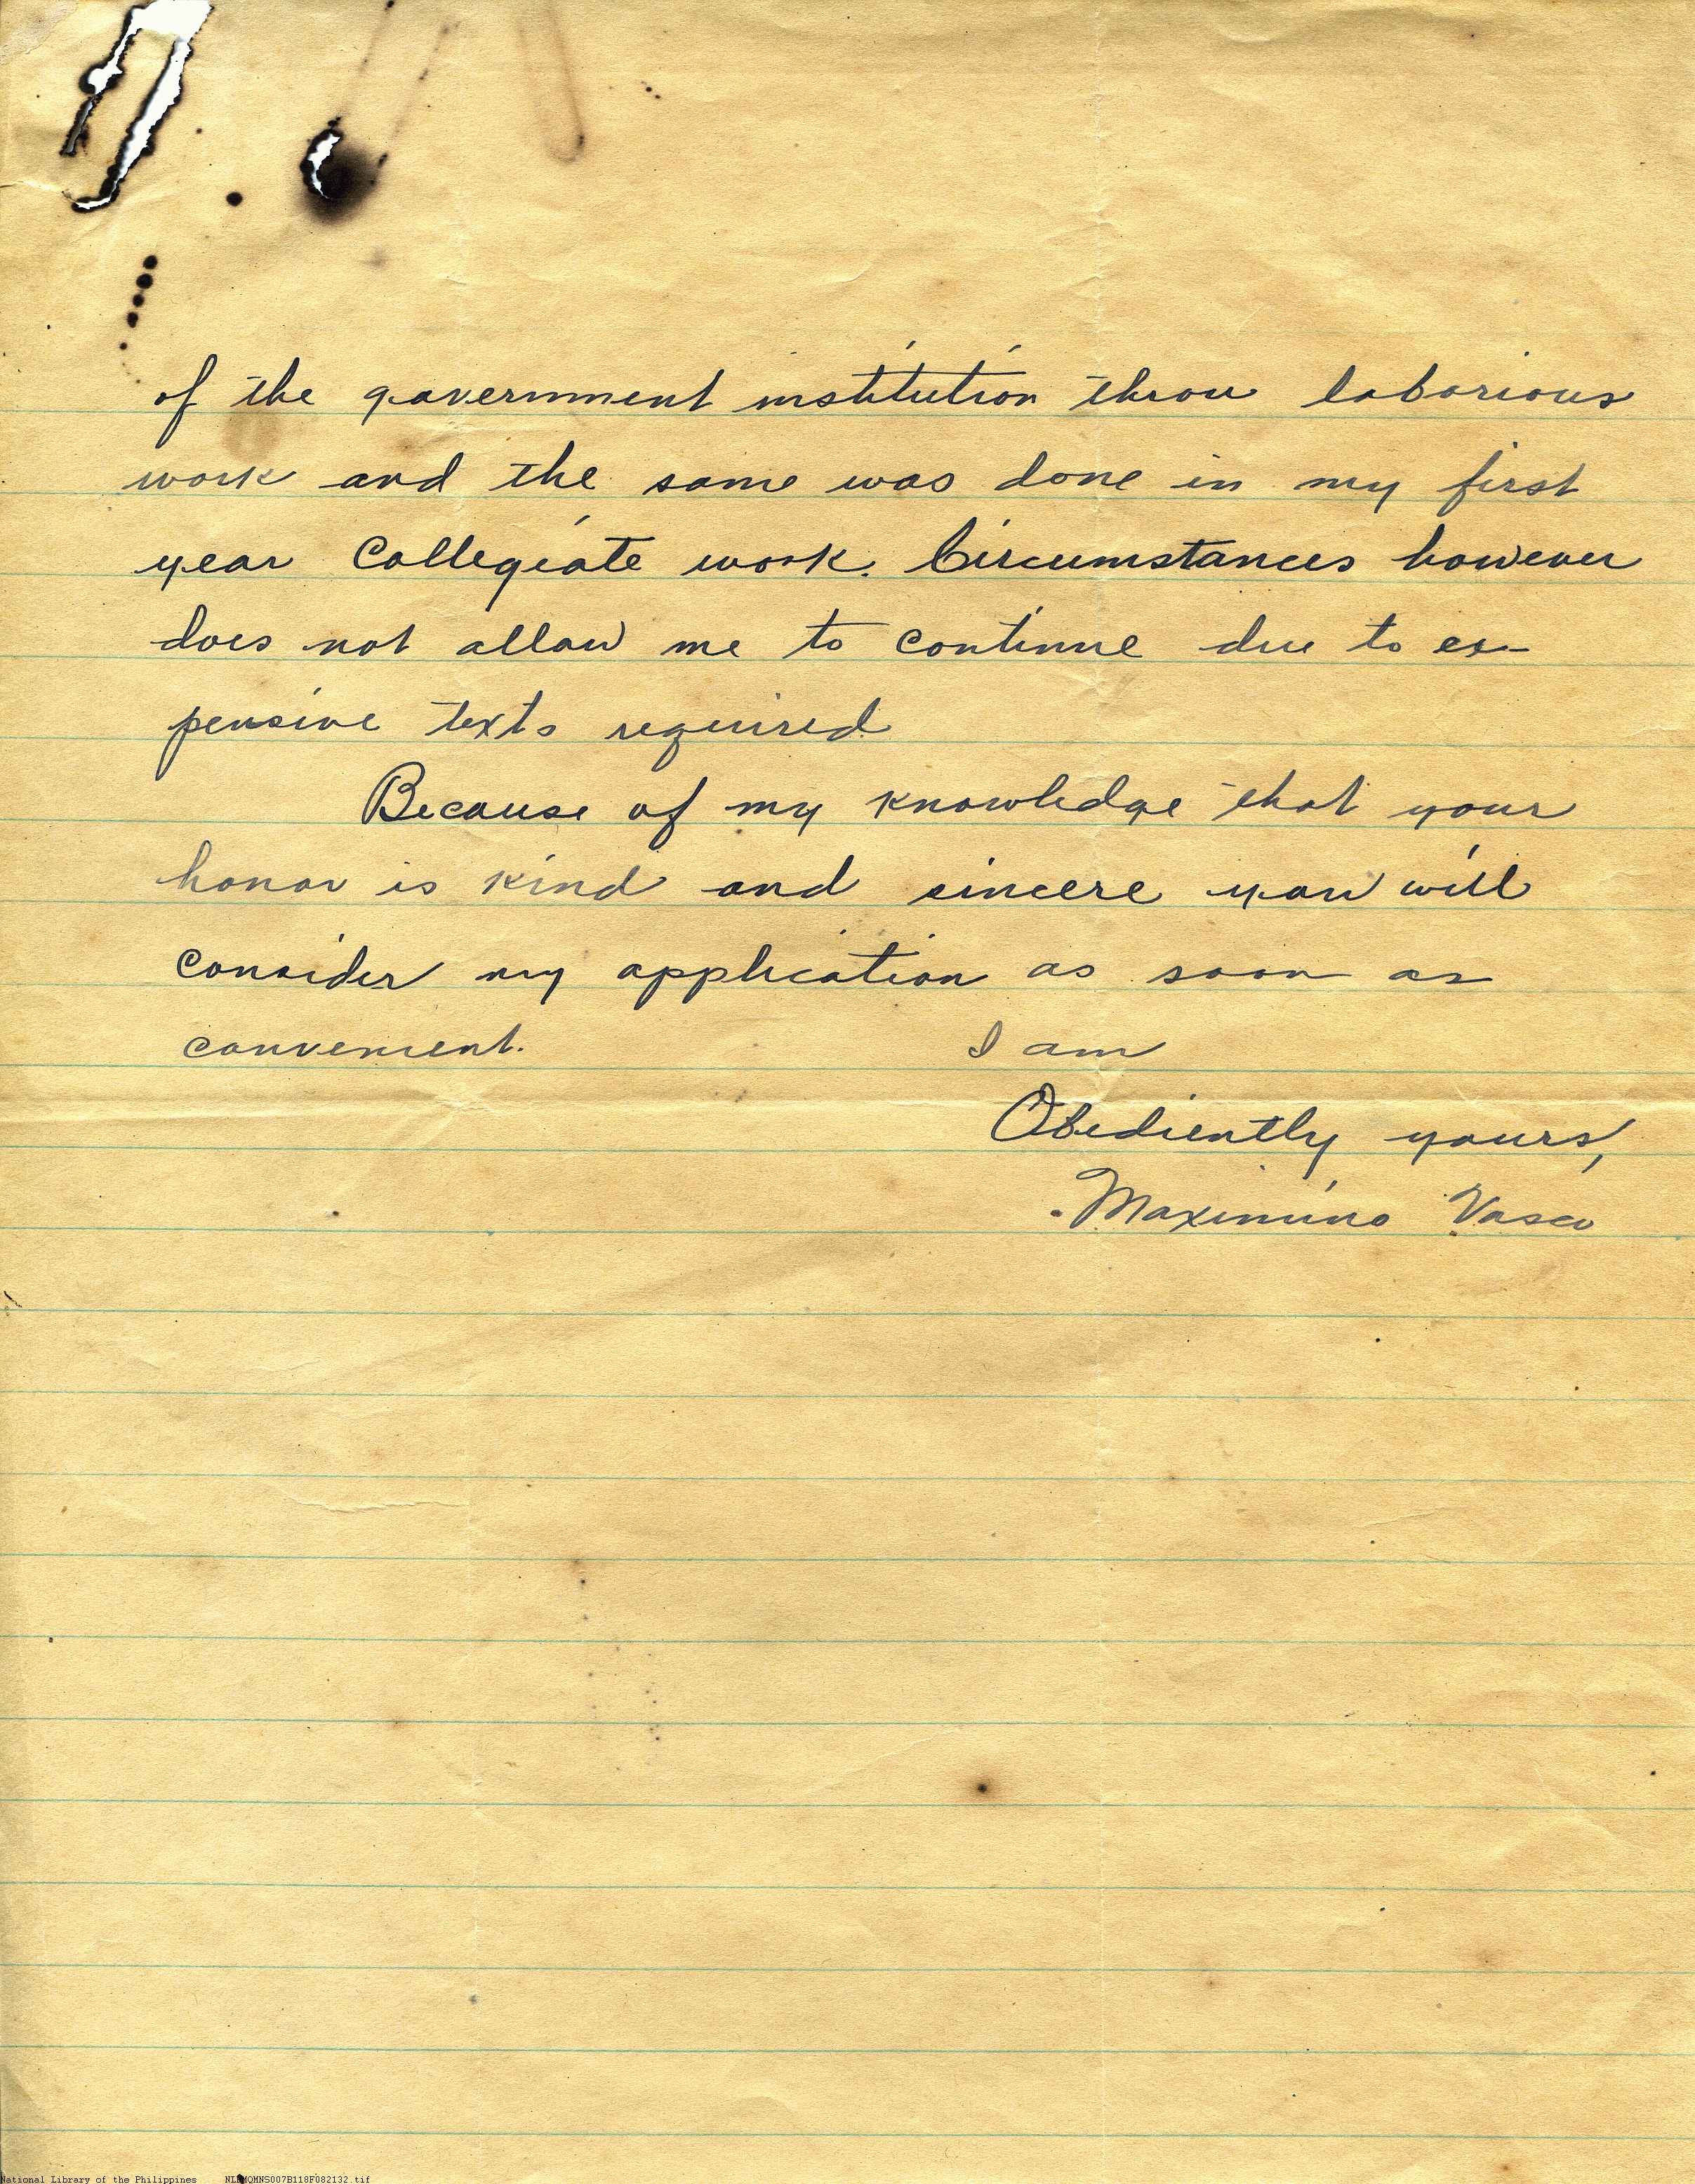 of the government institution throu laborious
work and the same was done in my first
year Collegiate work. Circumstances however
does not allow me to continue due to ex-
pensive texts required
Because of my knowledge that your
honor is kind and sincere you will
consider my application as soon as
convenient. I am
Obediently yours,
Maximino Vasco
National Library of the Philippines